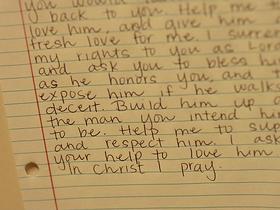 you would
back to you. Help me
love him, and give him
fresh love for me. I surren
my rights to you as Lord
and ask you to bless hi
as he honors you, and
expose him if he walks
deceit. Build him up
the man you intend him
to be. Help me to sup
and respect him. I ask
your help to love him
In Christ I pray.